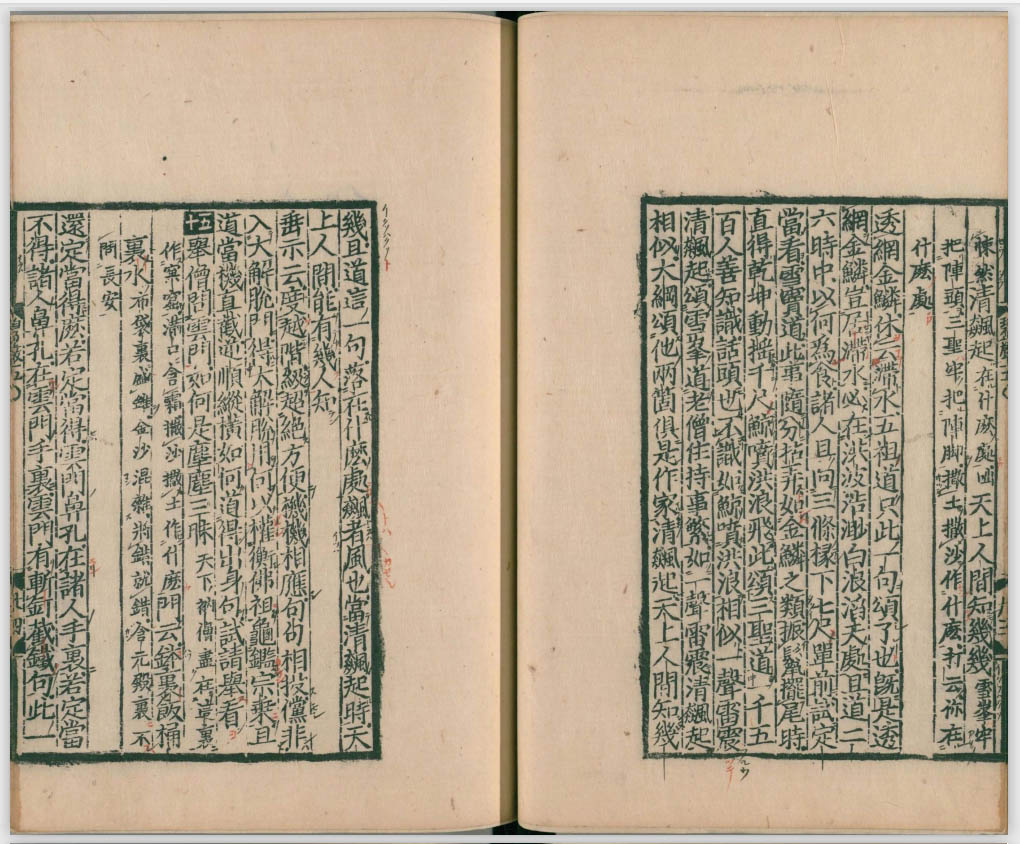 悚然清飈起在什麼處咄天上人間知幾幾雪峯牢
把陣頭三聖牢把陣脚撒土撒沙作什麽打云你在
什麽處
透網金鱗休云滯水五祖道只此一句頌了也既是透
網金鱗豈居滯水必在洪波浩渺白浪滔天處且道二
六時中以何爲食諸人且向三條椽下七尺單前試定
當看雪竇道此事隨分拈弄如金鱗之類振鬣擺尾時
直得乾坤動搖千尺鯨噴洪浪飛此頌三聖道一千五
百人善知識話頭也不識如鯨噴洪浪相似一聲雷震
清飈起頌雪峯道老僧住持事繁如一聲雷震清飈起
相似大綱頌他兩箇俱是作家清飈起天上人間知幾
幾且道這一句落在什麽處飈者風也當清飈起時天
上人間能有幾人知
垂示云度越階級超絕方便機機相應句句相投儻非
入大解脫門得大解脫用何以權衡佛祖龜鑑宗乘且
道當機直截逆順縱橫如何道得出身句試請舉看
五十舉僧問雲門如何是塵塵三昧天下衲僧盡在這裏
作窠窟滿口含霜撒沙撒土作什麽門云鉢裏飯桶
裏水布袋裏盛錐金沙混雜將錯就錯含元殿裏不
問長安
還定當得麽若定當得雲門鼻孔在諸人手裏若定當
不得諸人鼻孔在雲門手裏雲門有斬釘截鐵句此一